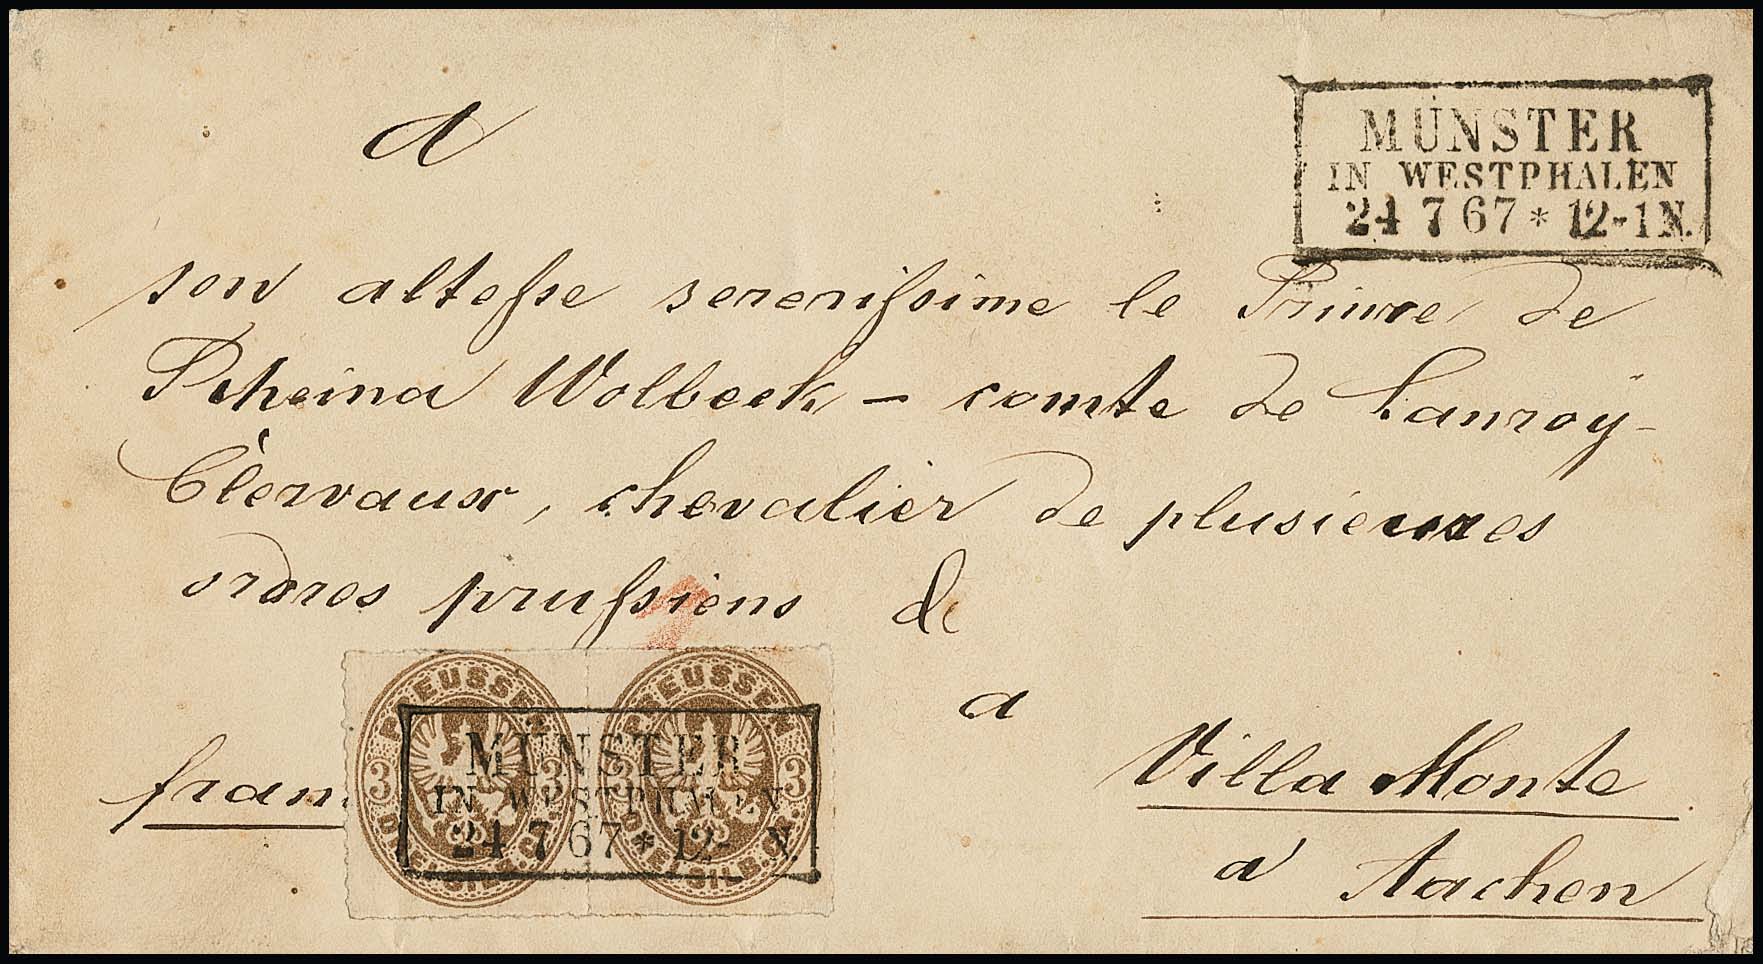 A
MÜNSTER
IN WESTPHALEN
24 7 67 * 12-1 N.
son altesse serenissime le Prince de
Rheina Wolbeck – comte de Lanroy-
Clervaux, chevalier de plusieures
ordres prussiens de
a
Villa Monte
a Aachen
fran
PREUSSEN 3
PREUSSEN 3
SILB. GR.
MÜNSTER
IN WESTPHALEN
24 7 67 * 12- N.